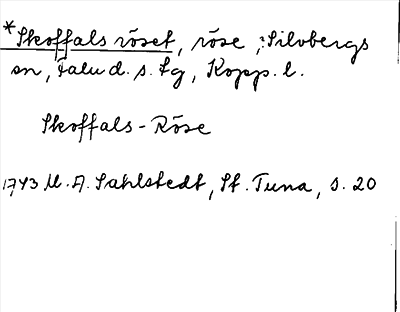 *Skoffals röset, röse, i Silvbergs
sn, Falu d. s. tg, Kopp. l.
Skoffals-Röse
1743 M. A. Sahlstedt, St. Tuna, s. 20